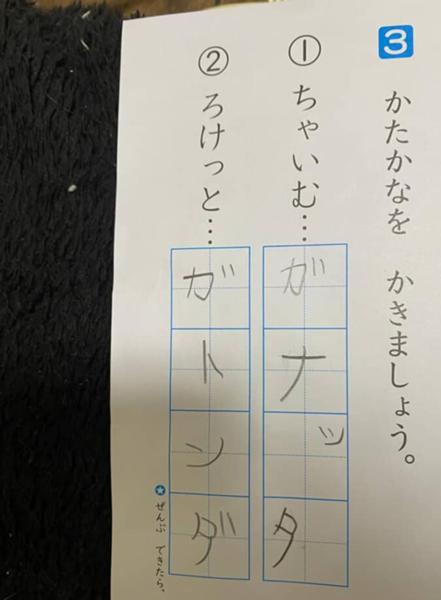 3 かたかなを かきましょう。
① ちゃいむ… ガナッタ
② ろけっと… ガトンダ
★ ぜんぶ できたら、